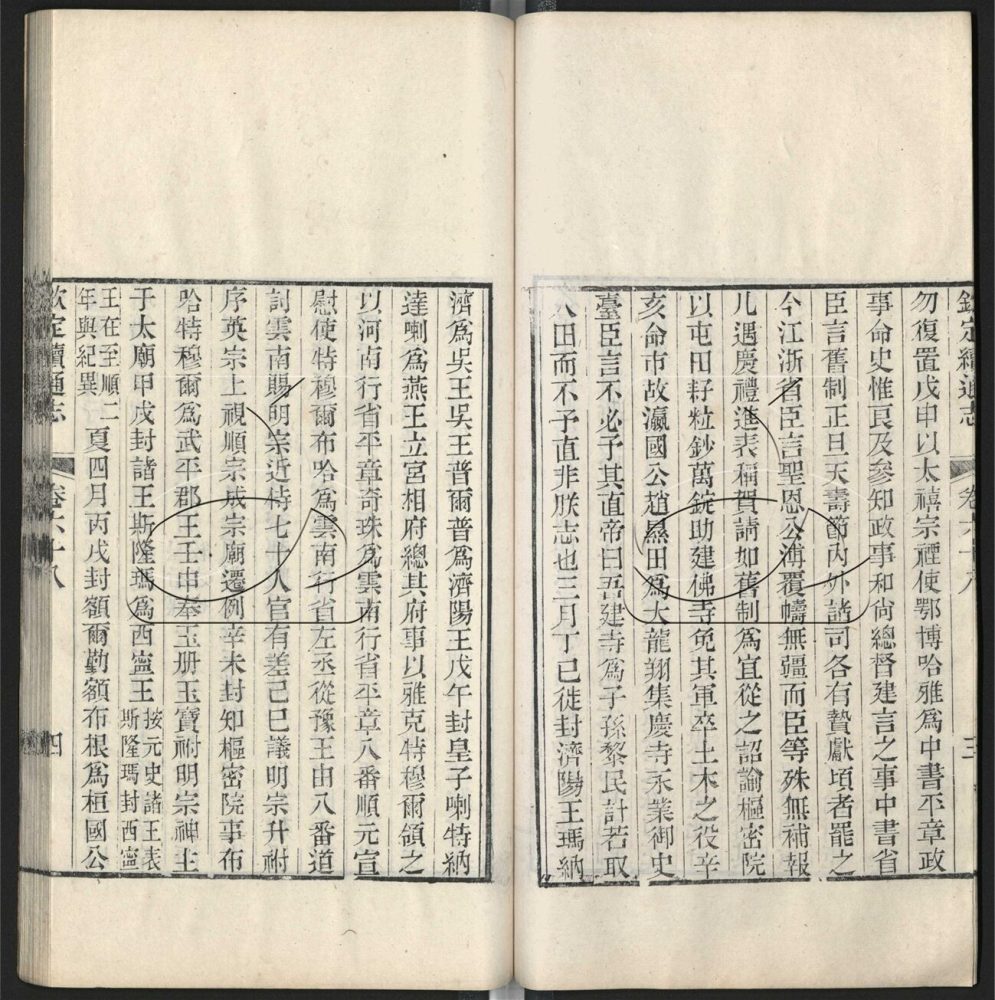 欽定續通志 卷六十八 三
勿復置戊申以太禧宗禋使鄂博哈雅爲中書平章政
事命史惟良及參知政事和尚總督建言之事中書省
臣言舊制正旦天壽節内外諸司各有贄獻頃者罷之
今江浙省臣言聖恩公溥覆幬無疆而臣等殊無補報
凡遇慶禮進表稱賀請如舊制爲宜從之詔諭樞密院
以屯田籽粒鈔萬錠助建佛寺免其軍卒土木之役辛
亥命市故瀛國公趙㬎田爲大龍翔集慶寺永業御史
臺臣言不必予其直帝曰吾建寺爲子孫黎民計若取
人田而不予直非朕志也三月丁巳徙封濟陽王瑪納
濟爲吳王吳王普爾普爲濟陽王戊午封皇子喇特納
達喇爲燕王立宮相府總其府事以雅克特穆爾領之
以河南行省平章奇珠爲雲南行省平章八番順元宣
慰使特穆爾布哈爲雲南行省左丞從豫王由八番道
討雲南賜明宗近侍七十人官有差己巳議明宗升祔
序英宗上視順宗成宗廟遷例辛未封知樞密院事布
哈特穆爾爲武平郡王壬申奉玉册玉寶祔明宗神主
于太廟甲戌封諸王斯隆瑪爲西寧王按元史諸王表斯隆瑪封西寧
王在至順二年與紀異夏四月丙戌封額爾勤額布根爲桓國公
欽定續通志 卷六十八 四